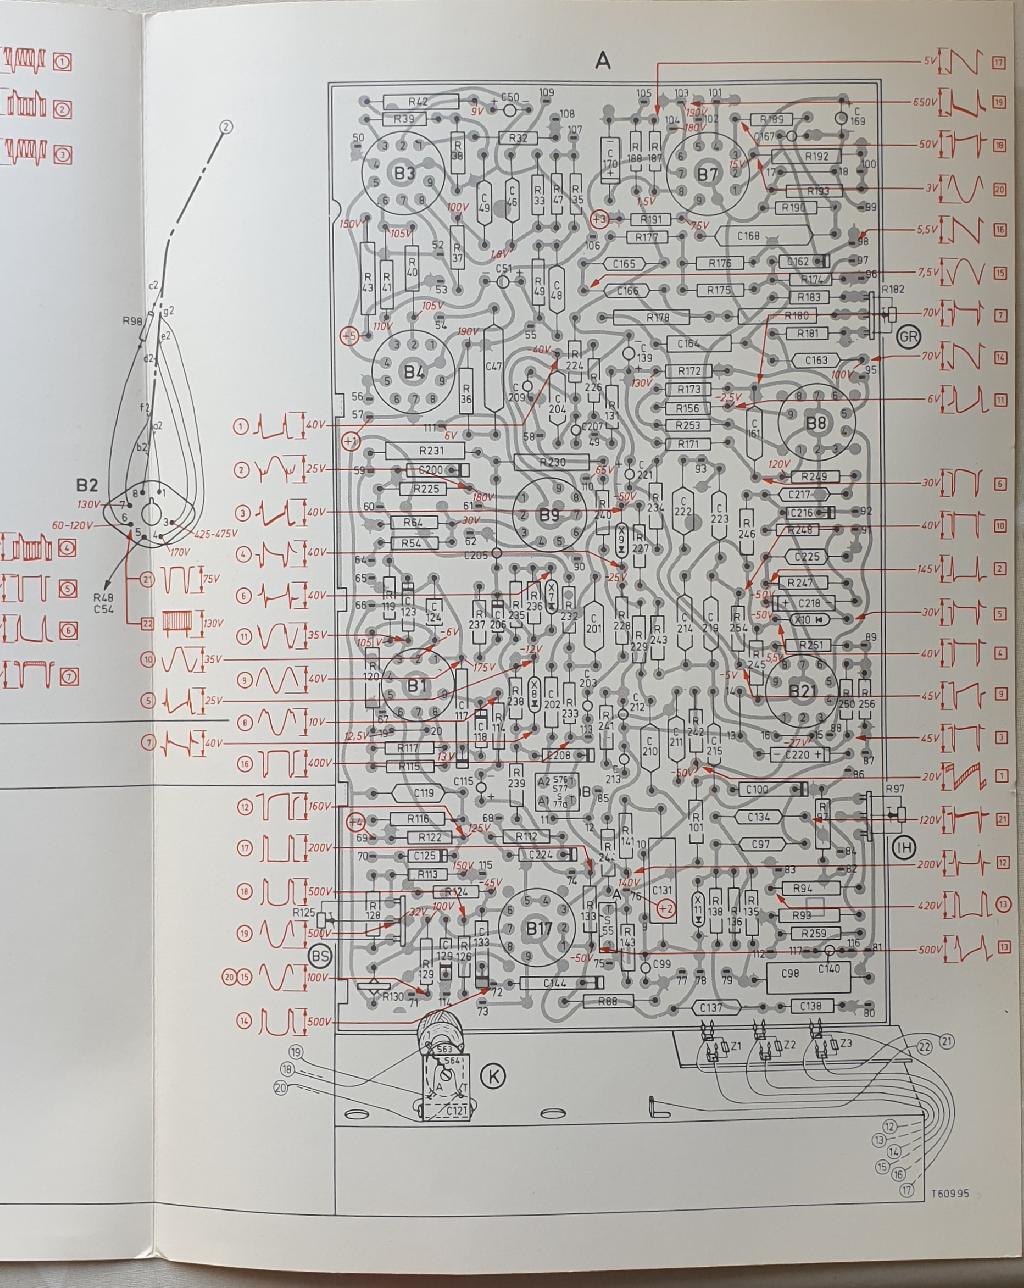 A
T60995
B2
R98
c2
g2
e2
d2
f2
a2
b2
130V
60-120V
425-475V
170V
R48
C54
75V
130V
① 40V
② 25V
③ 40V
④ 40V
⑥ 40V
⑪ 35V
⑩ 35V
⑨ 40V
⑤ 25V
⑧ 10V
⑦ 40V
⑯ 400V
⑫ 160V
⑰ 200V
⑱ 500V
⑲ 500V
⑳ ⑮ 100V
⑭ 500V
5V 17
650V 19
50V 18
3V 20
5,5V 16
7,5V 15
70V 7
70V 14
6V 11
30V 6
40V 10
145V 2
30V 5
40V 4
45V 9
45V 3
20V 1
120V 21
200V 12
420V 13
500V 13
R42
R39
9V
C50
109
108
105
103
101
R189
C169
50
B3
R38
R32
107
C170
R188
R187
104
190V
180V
102
B7
15V
C167
R192
100
17
18
R193
R190
99
150V
105V
100V
C49
C46
R33
R47
R35
1,5V
+3
R191
75V
R177
C168
98
52
R37
1,8V
106
R43
R41
R40
53
C51
R49
C48
C165
C166
R176
R175
C162
97
R174
96
R183
R182
+5
110V
54
105V
190V
55
R178
R180
R181
GR
B4
C47
R36
40V
R224
C209
C204
R226
C139
R131
C207
130V
C164
R172
R173
R156
R253
R171
-2,5V
C163
100V
95
C161
B8
56
57
+1
111
6V
58
49
R231
59
C200
R225
R230
65V
C221
93
120V
R249
110
60
61
180V
B9
-50V
R240
R234
C222
C223
C217
C216
92
R64
30V
R54
62
R227
R246
R248
91
64
C205
90
-25V
C225
65
R119
C123
C124
R237
C206
R235
R236
X7
R232
C201
R228
R229
R243
C214
C219
R254
R247
-50V
C218
X10
66
105V
-6V
-12V
R251
89
R120
B1
175V
C117
R238
X8
C202
R233
203
-5V
R245
B21
R250
R256
67
19
20
C118
R114
R241
C212
R242
14
13
16
15
88
12,5V
R117
R115
13V
C208
213
C210
C211
C215
-27V
C220
87
86
C115
R239
A2
A1
B
85
-50V
C100
R97
C119
68
11
12
C134
IH
+4
R116
125V
R112
R141
R101
69
R122
C97
84
70
C125
150V
115
C224
10
83
82
R113
-45V
74
140V
C131
R94
R124
R125
R128
32V
100V
B17
R133
A
76
+2
X11
R138
R136
R135
R93
R259
BS
C133
R143
9
112
117
116
81
R129
C129
R126
-50V
75
C99
77
78
79
C98
C140
R130
71
114
72
73
C144
R88
C137
C138
80
S63
S64
A
T
C121
K
19
18
20
Z1
Z2
Z3
22
21
12
13
14
15
16
17